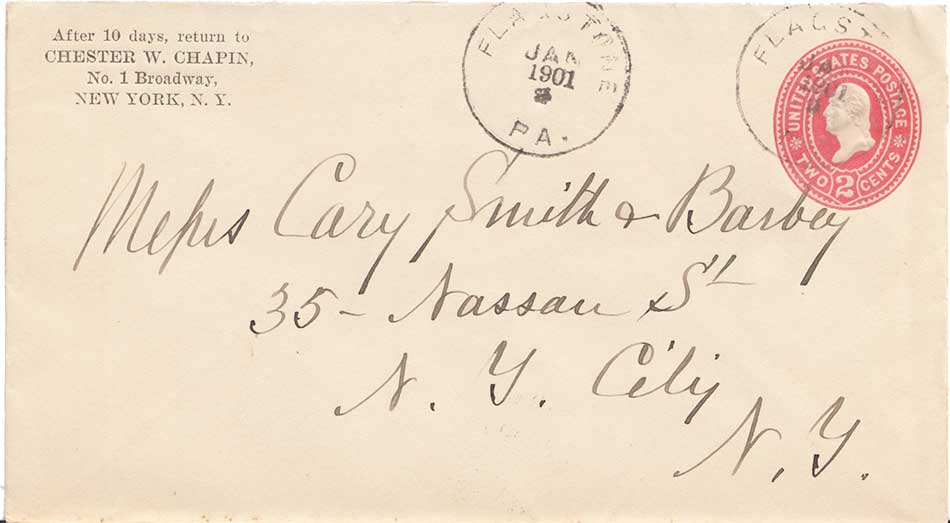 After 10 days, return to
CHESTER W. CHAPIN,
No. 1 Broadway,
NEW YORK, N. Y.
FLAGSTONE
JAN
1901
PA.
FLAGST
1901
UNITED STATES POSTAGE
TWO 2 CENTS
Messrs Cary Smith & Barbey
35- Nassau St
N. Y. City
N. Y.